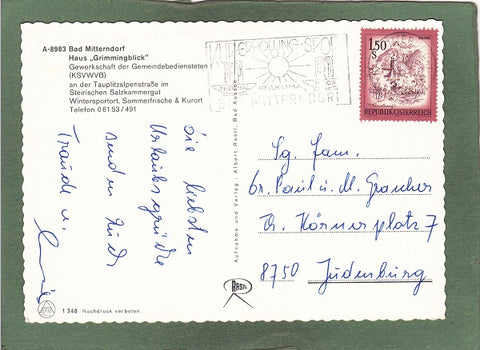 A-8983 Bad Mitterndorf
Haus „Grimmingblick"
Gewerkschaft der Gemeindebediensteten
(KSVWVB)
an der Tauplitzalpenstraße im
Steirischen Salzkammergut
Wintersportort, Sommerfrische & Kurort
Telefon 0 61 53 / 491
Die liebsten
Urlaubsgrüße
senden Euch
Traudl u.
1 348 Nachdruck verboten.
Aufnahme und Verlag: Albert Rastl, Bad Aussee
RASTL
KUR ERHOLUNG SPORT
BAD MITTERNDORF
1.50
S
REPUBLIK ÖSTERREICH
Sg. Fam.
Paul u. M.
Th. Körnerplatz 7
8750 Judenburg